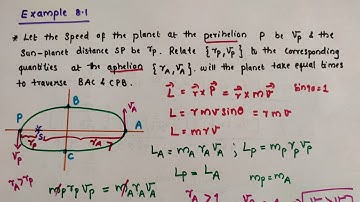 Example 8.1
* Let the Speed of the planet at the perihelion P be Vp & the
Sun-planet distance SP be rp. Relate {rp, vp} to the corresponding
quantities at the aphelion {rA, vA}. will the planet take equal times
to traverse BAC & CPB.
L = r × P = r × m v
sin90=1
L = r m v sinθ = r m v
L = m r v
LA = mA rA VA ; Lp = mp rp Vp
Lp = LA
mp = mA
mp rp Vp = mA rA VA
B
VA
P
S
rp
rA
A
Vp
C
rA > rp
rA > 1